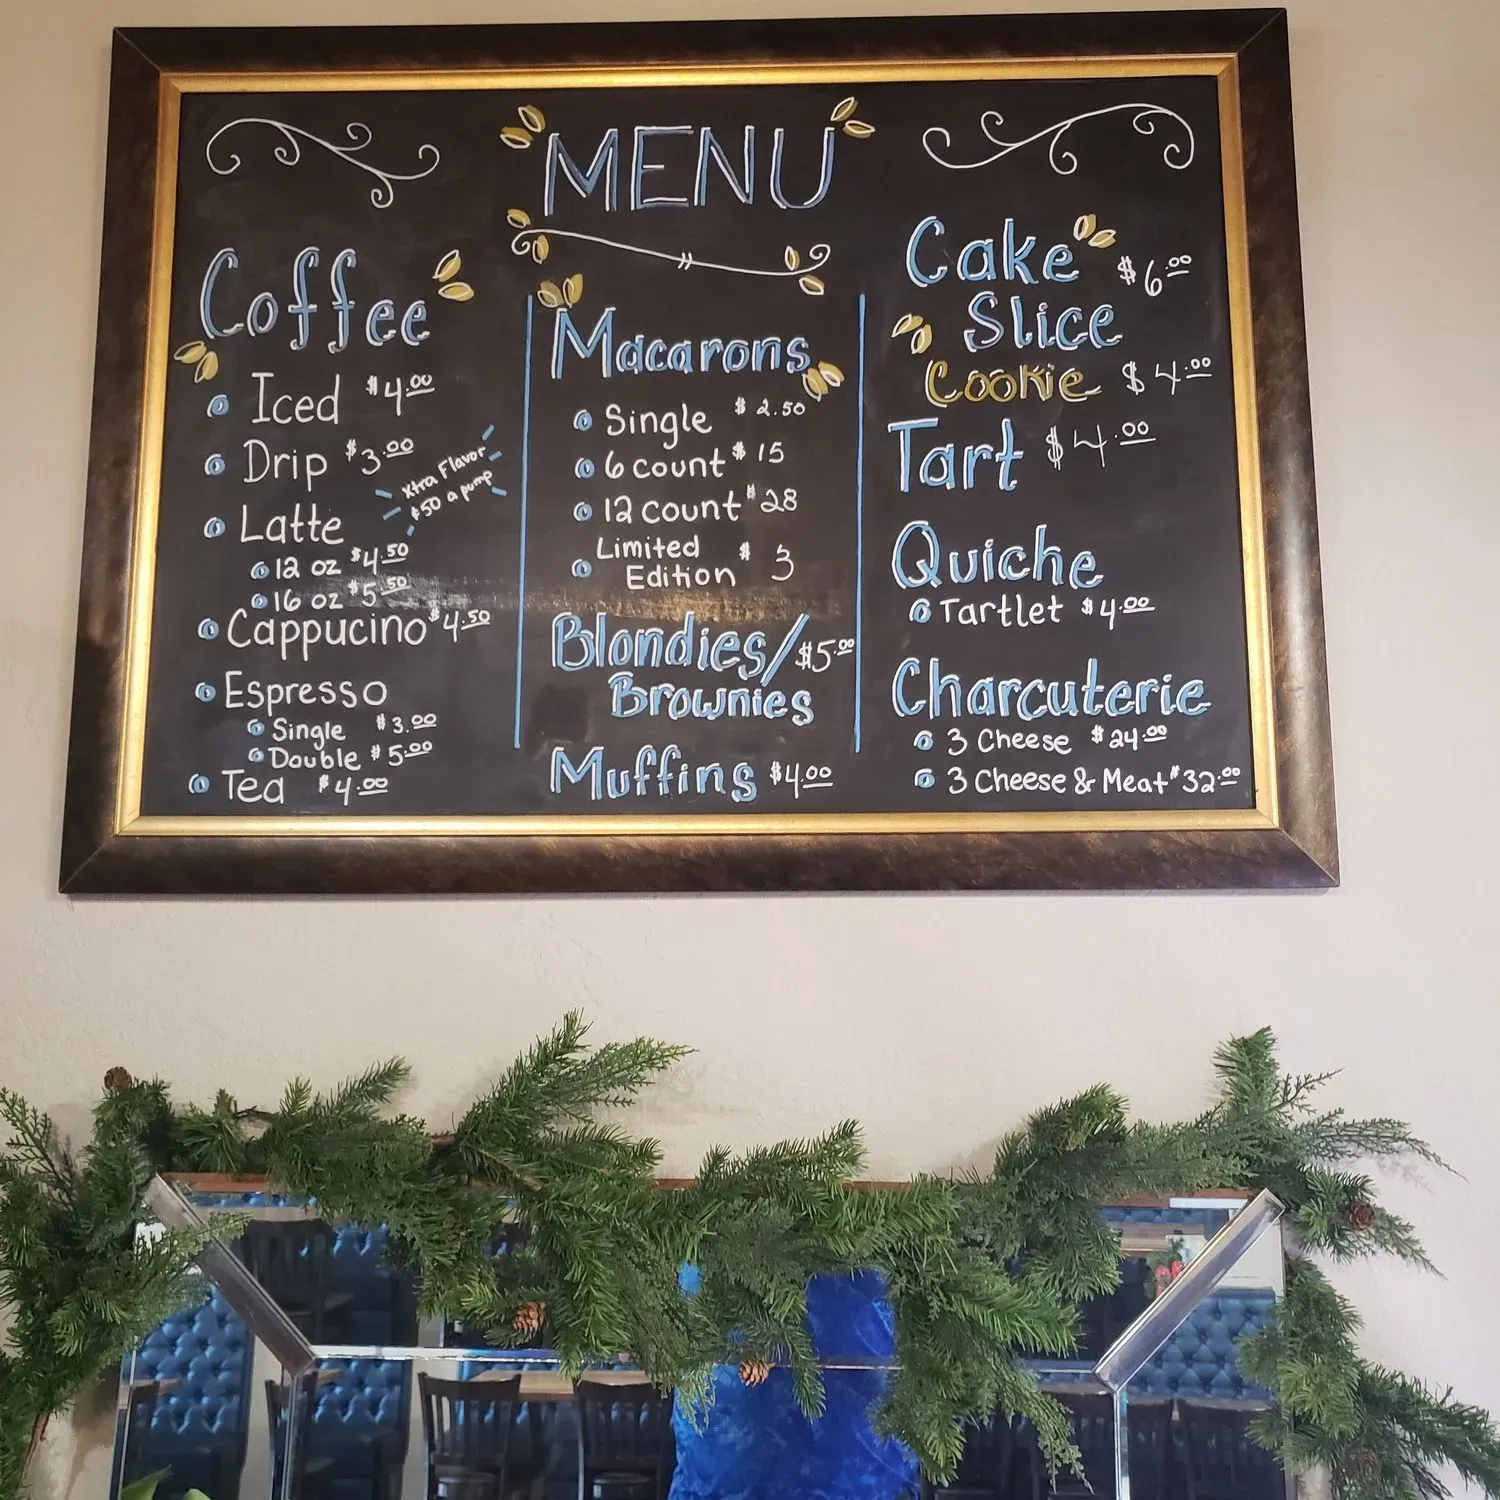 MENU
Coffee
Iced $4.00
Drip $3.00
Xtra Flavor
$.50 a pump
Latte
12 oz $4.50
16 oz $5.50
Cappucino $4.50
Espresso
Single $3.00
Double $5.00
Tea $4.00
Macarons
Single $2.50
6 count $15
12 count $28
Limited
Edition $3
Blondies/ $5.00
Brownies
Muffins $4.00
Cake $6.00
Slice
Cookie $4.00
Tart $4.00
Quiche
Tartlet $4.00
Charcuterie
3 Cheese $24.00
3 Cheese & Meat $32.00